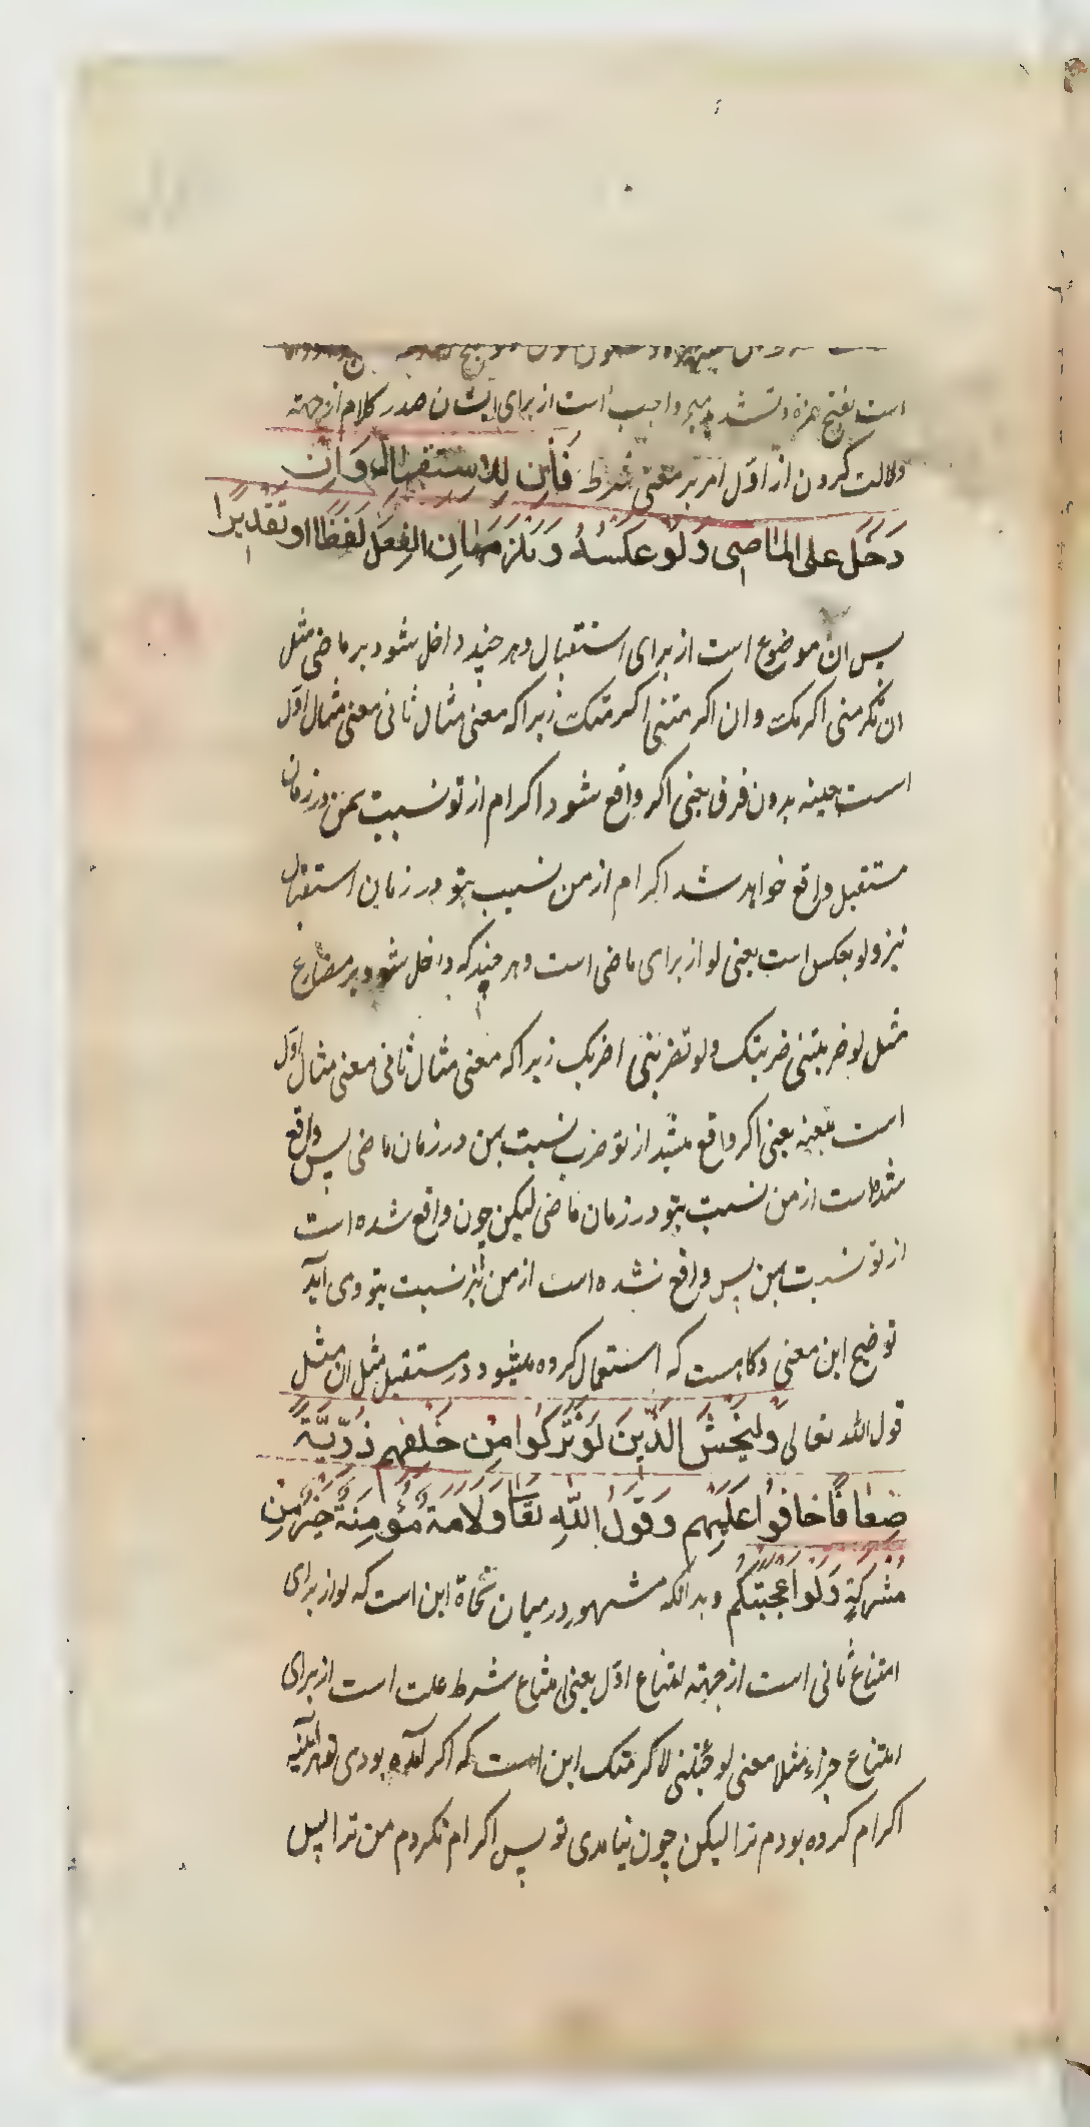 است بفتح همزه و تشدید میم واجب است از برای ایشان صدر کلام از جهته
دلالت کردن از اوّل امر بر معنی شرط فَاِن لِلاِستقبالِ وَاِن
دَخَلَ علی الماضی وَلَو عَکسُهُ وَتَلزَمَانِ الفِعلَ لَفظًا او تقدیرًا
پس ان موضوع است از برای استقبال و هر چند داخل شود بر ماضی مثل
ان تکرمنی اکرمک و ان اکرمتنی اکرمتک زیرا که معنی مثال ثانی معنی مثال اوّل
است بعینه بدون فرق یعنی اکر واقع شود اکرام از تو نسبت بمن در زمان
مستقبل واقع خواهد شد اکرام از من نسبت بتو در زمان استقبال
نیز و لو بعکس است یعنی لو از برای ماضی است و هر چند که داخل شود بر مضارع
مثل لو ضربتنی ضربتک و لو تضربنی اضربک زیرا که معنی مثال ثانی معنی مثال اوّل
است بعینه یعنی اکر واقع میشد از تو ضرب نسبت بمن در زمان ماضی پس واقع
شده است از من نسبت بتو در زمان ماضی لیکن چون واقع شده است
از تو نسبت بمن پس واقع نشده است از من نیز نسبت بتو وی آید
توضیح این معنی و کاهست که استعمال کرده میشود در مستقبل مثل ان مثل
قول الله تعالی وَلیَخشَ الَّذینَ لَو تَرَکُوا مِن خَلفِهِم ذُرّیَّةً
ضِعافًا خافُوا عَلَیهِم وَقَولُ اللّهِ تَعَا وَلَاَمَةٌ مُؤمِنَةٌ خَیرٌ مِن
مُشرِکَةٍ وَلَو اَعجَبَتکُم و بدانکه مشهور در میان نحاة این است که لو از برای
امتناع ثانی است از جهته امتناع اوّل یعنی امتناع شرط علت است از برای
امتناع جزاء مثلا معنی لو جئتنی لاکرمتک این است که اکر آمده بودی هر آینه
اکرام کرده بودم ترا لیکن چون نیامدی تو پس اکرام نکردم من ترا پس